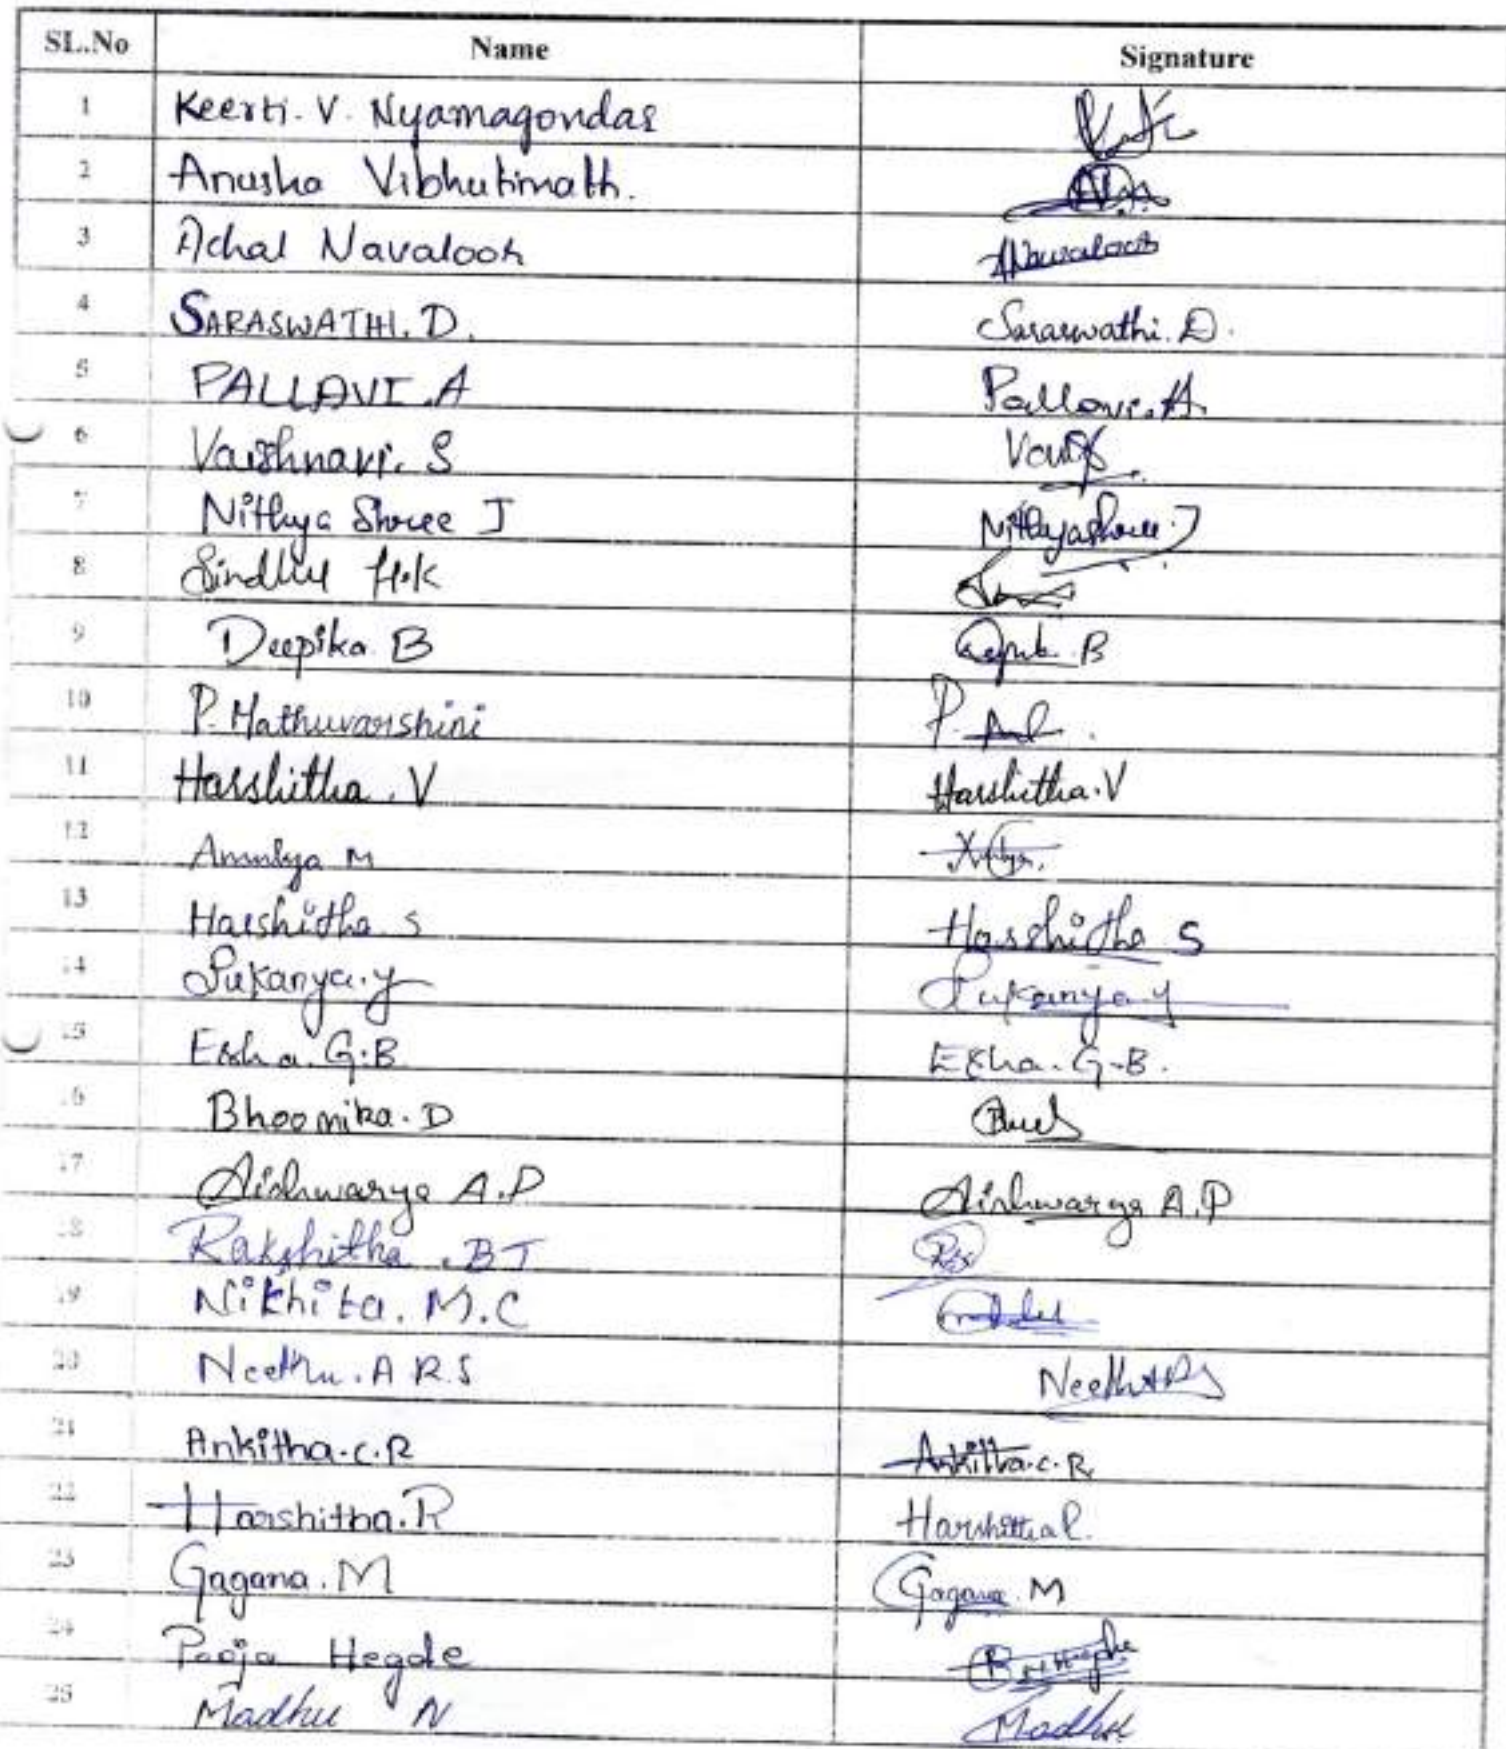 SL.No Name Signature
1 Keerti. V. Nyamagondar
2 Anusha Vibhutimath.
3 Achal Navaloor ANavaloor
4 SARASWATHI. D. Saraswathi. D.
5 PALLAVI .A Pallavi. A.
6 Vaishnavi. S
7 Nithya Shree J Nithyashree. J
8 Sindhu H.K
9 Deepika B B
10 P. Mathuvarshini P.
11 Harshitha . V Harshitha. V
12 Amulya M
13 Harshitha s Harshitha S
14 Sukanya. y Sukanya y
15 Eksha. G.B Eksha. G.B.
16 Bhoomika. D
17 Aishwarya A.P Aishwarya A.P
18 Rakshitha . B J
19 Nikhita. M.C
20 Neethu. A R.S Neethu ARS
21 Ankitha.c.R Ankitha.c.R
22 Harshitha. R Harshitha R.
23 Gagana. M Gagana M
24 Pooja Hegde
25 Madhu N Madhu